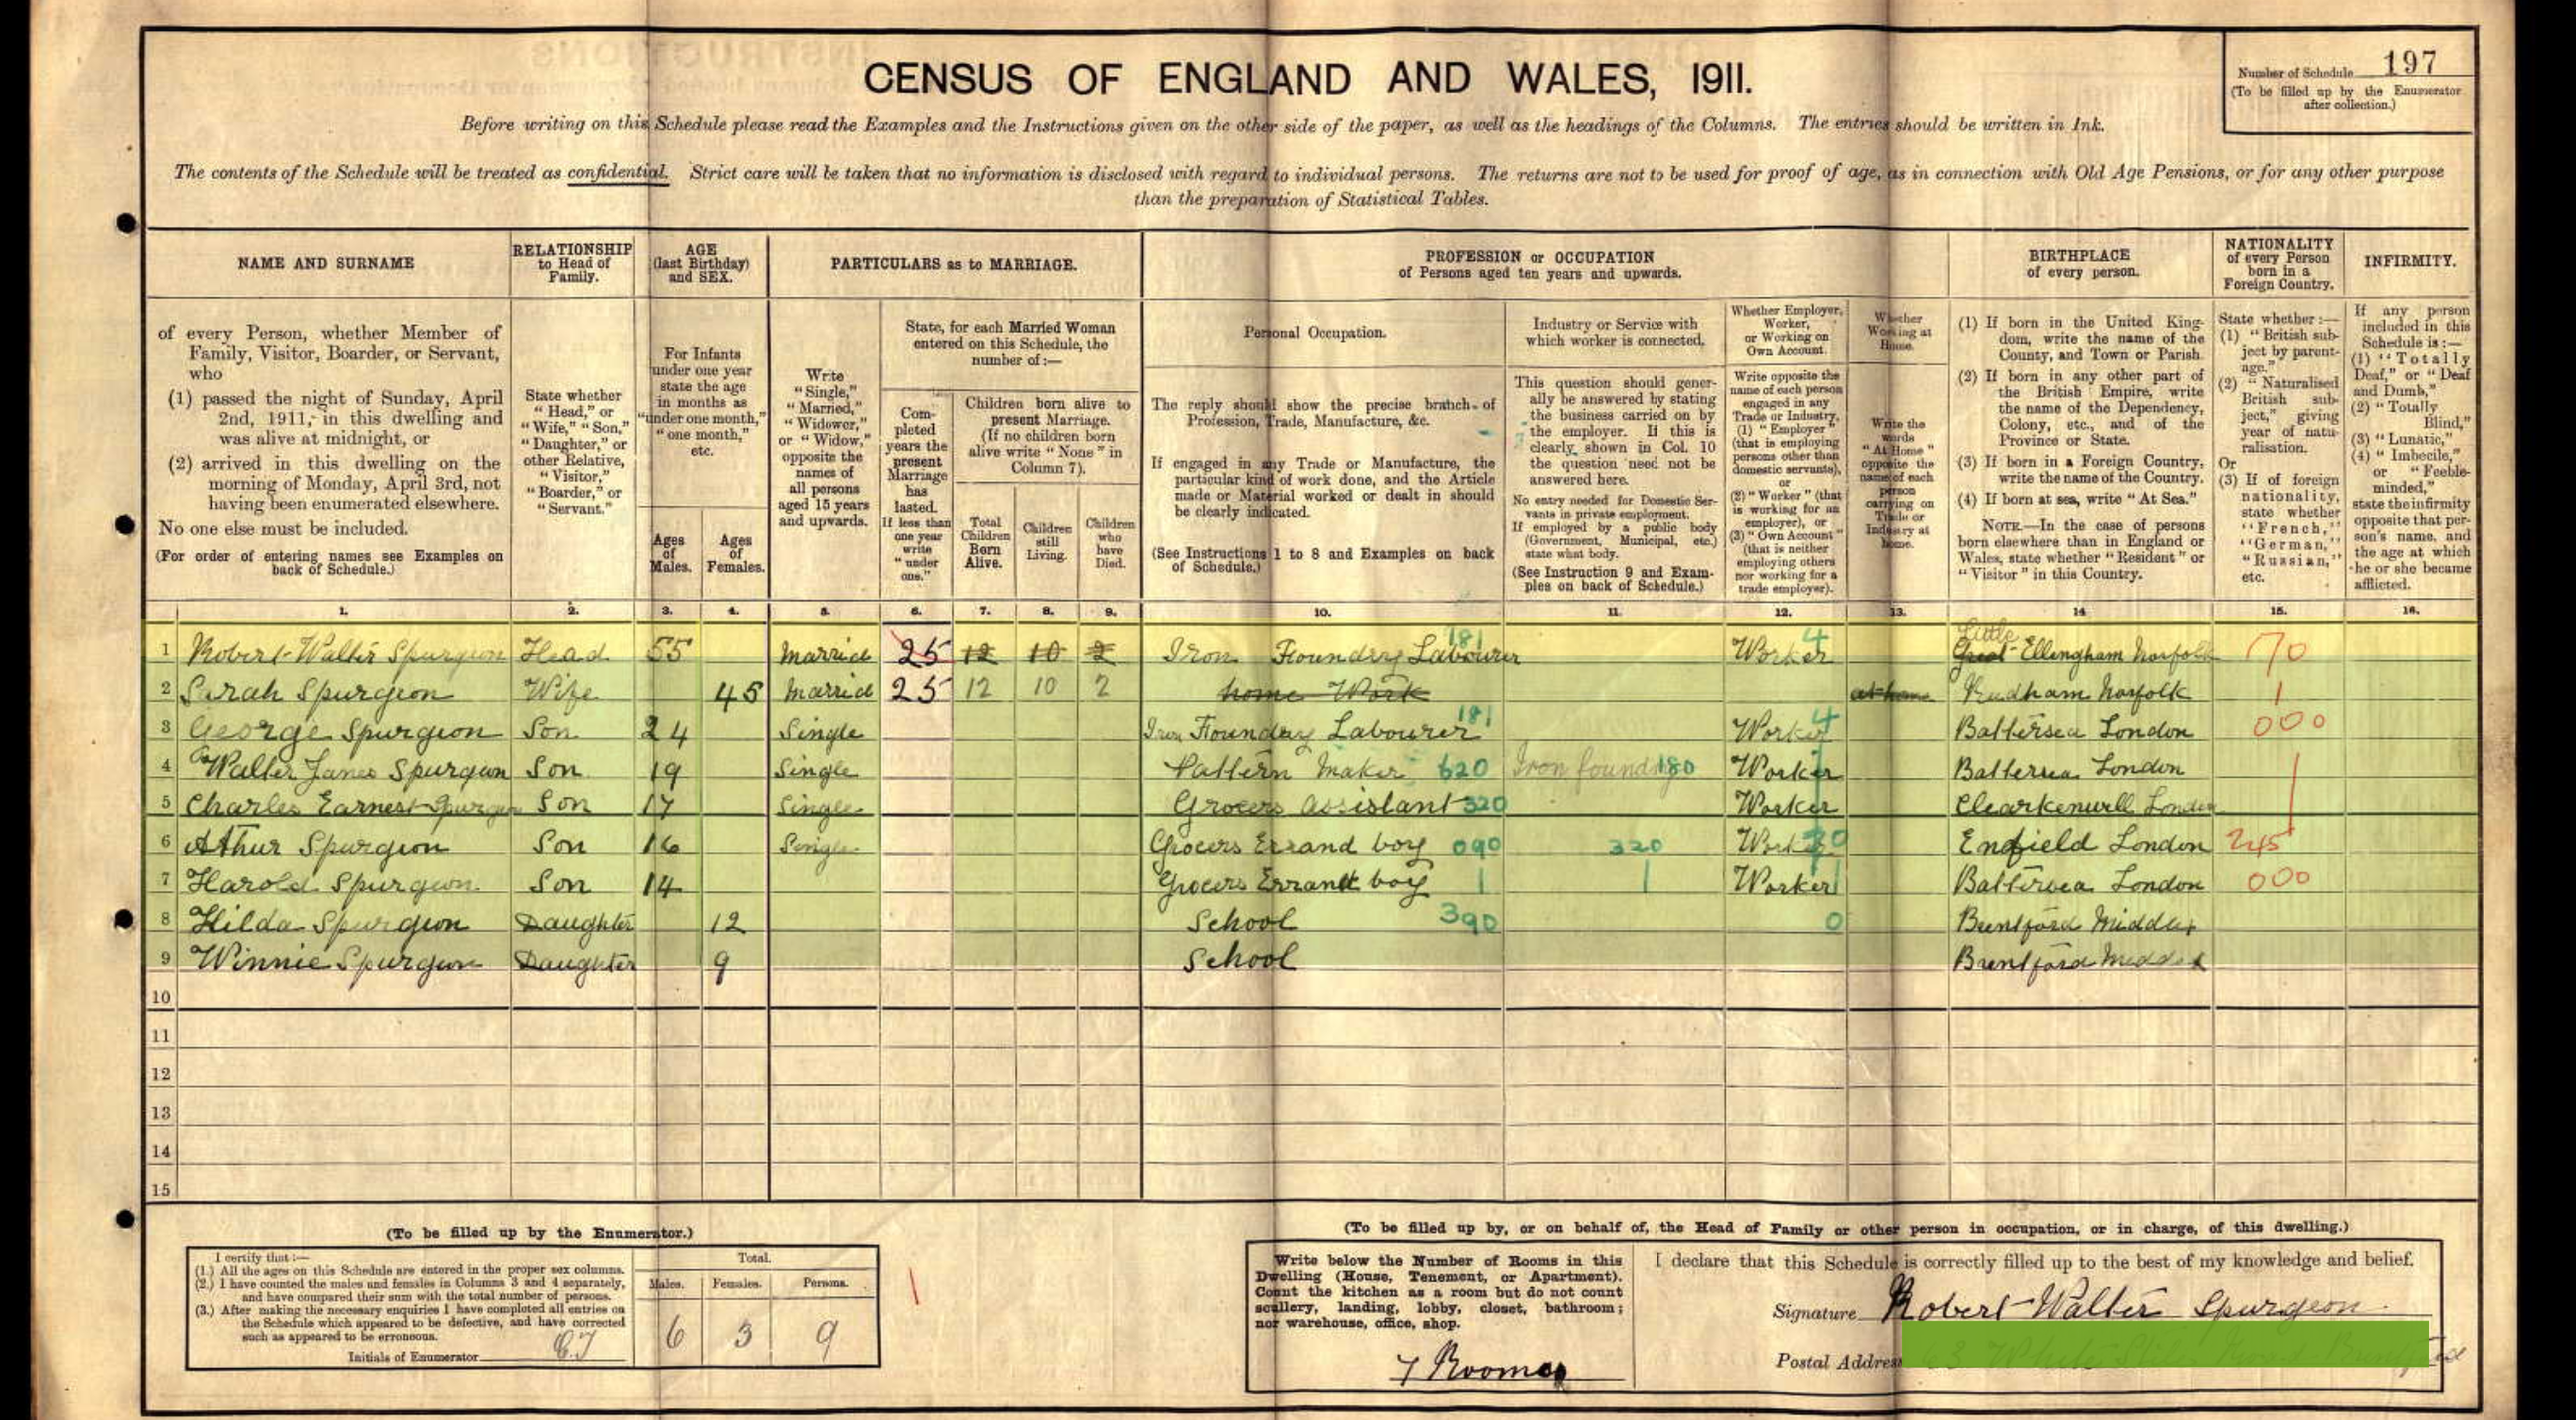 CENSUS OF ENGLAND AND WALES, 1911.
Number of Schedule 197
(To be filled up by the Enumerator after collection.)
Before writing on this Schedule please read the Examples and the Instructions given on the other side of the paper, as well as the headings of the Columns. The entries should be written in Ink.
The contents of the Schedule will be treated as confidential. Strict care will be taken that no information is disclosed with regard to individual persons. The returns are not to be used for proof of age, as in connection with Old Age Pensions, or for any other purpose
than the preparation of Statistical Tables.
NAME AND SURNAME
of every Person, whether Member of
Family, Visitor, Boarder, or Servant,
who
(1) passed the night of Sunday, April
2nd, 1911, in this dwelling and
was alive at midnight, or
(2) arrived in this dwelling on the
morning of Monday, April 3rd, not
having been enumerated elsewhere.
No one else must be included.
(For order of entering names see Examples on
back of Schedule.)
RELATIONSHIP
to Head of
Family.
State whether
"Head," or
"Wife," "Son,"
"Daughter," or
other Relative,
"Visitor,"
"Boarder," or
"Servant."
AGE
(last Birthday)
and SEX.
For Infants
under one year
state the age
in months as
"under one month,"
"one month,"
etc.
Ages
of
Males.
Ages
of
Females.
PARTICULARS as to MARRIAGE.
Write
"Single,"
"Married,"
"Widower,"
or "Widow,"
opposite the
names of
all persons
aged 15 years
and upwards.
State, for each Married Woman
entered on this Schedule, the
number of:—
Com-
pleted
years the
present
Marriage
has
lasted.
If less than
one year
write
"under
one."
Children born alive to
present Marriage.
(If no children born
alive write "None" in
Column 7).
Total
Children
Born
Alive.
Children
still
Living.
Children
who
have
Died.
PROFESSION or OCCUPATION
of Persons aged ten years and upwards.
Personal Occupation.
The reply should show the precise branch of
Profession, Trade, Manufacture, &c.
If engaged in any Trade or Manufacture, the
particular kind of work done, and the Article
made or Material worked or dealt in should
be clearly indicated.
(See Instructions 1 to 8 and Examples on back
of Schedule.)
Industry or Service with
which worker is connected.
This question should gener-
ally be answered by stating
the business carried on by
the employer. If this is
clearly shown in Col. 10
the question need not be
answered here.
No entry needed for Domestic Ser-
vants in private employment.
If employed by a public body
(Government, Municipal, etc.)
state what body.
(See Instruction 9 and Exam-
ples on back of Schedule.)
Whether Employer,
Worker,
or Working on
Own Account.
Write opposite the
name of each person
engaged in any
Trade or Industry,
(1) "Employer"
(that is employing
persons other than
domestic servants),
or
(2) "Worker" (that
is working for an
employer), or
(3) "Own Account"
(that is neither
employing others
nor working for a
trade employer).
Whether
Working at
Home.
Write the
words
"At Home"
opposite the
name of each
person
carrying on
Trade or
Industry at
home.
BIRTHPLACE
of every person.
(1) If born in the United King-
dom, write the name of the
County, and Town or Parish.
(2) If born in any other part of
the British Empire, write
the name of the Dependency,
Colony, etc., and of the
Province or State.
(3) If born in a Foreign Country,
write the name of the Country.
(4) If born at sea, write "At Sea."
NOTE.—In the case of persons
born elsewhere than in England or
Wales, state whether "Resident" or
"Visitor" in this Country.
NATIONALITY
of every Person
born in a
Foreign Country.
State whether:—
(1) "British sub-
ject by parent-
age,"
(2) "Naturalised
British sub-
ject," giving
year of natu-
ralisation.
Or
(3) If of foreign
nationality,
state whether
"French,"
"German,"
"Russian,"
etc.
INFIRMITY.
If any person
included in this
Schedule is:—
(1) "Totally
Deaf," or "Deaf
and Dumb,"
(2) "Totally
Blind,"
(3) "Lunatic,"
(4) "Imbecile,"
or "Feeble-
minded,"
state the infirmity
opposite that per-
son's name, and
the age at which
he or she became
afflicted.
1. 2. 3. 4. 5. 6. 7. 8. 9. 10. 11. 12. 13. 14 15. 16.
1 Robert Walter Spurgeon Head 55 Married 25 12 10 2 Iron Foundry Labourer 181 Worker 4 Great Little Ellingham Norfolk 170
2 Sarah Spurgeon Wife 45 Married 25 12 10 2 home Work at home Rudham Norfolk 1
3 George Spurgeon Son 24 Single Iron Foundry Labourer 181 Worker 4 Battersea London 000
4 Walter James Spurgeon Son 19 Single Pattern Maker 620 Iron foundry 180 Worker Battersea London
5 Charles Earnest Spurgeon Son 17 Single Grocers Assistant 320 Worker Clearkenwell London
6 Athur Spurgeon Son 16 Single Grocers Errand boy 090 320 Worker Enfield London 245
7 Harold Spurgeon Son 14 Grocers Errand boy Worker Battersea London 000
8 Hilda Spurgeon Daughter 12 School 390 0 Brentford Middx
9 Winnie Spurgeon Daughter 9 School Brentford Middx
10
11
12
13
14
15
(To be filled up by the Enumerator.)
I certify that:—
(1.) All the ages on this Schedule are entered in the proper sex columns.
(2.) I have counted the males and females in Columns 3 and 4 separately,
and have compared their sum with the total number of persons.
(3.) After making the necessary enquiries I have completed all entries on
the Schedule which appeared to be defective, and have corrected
such as appeared to be erroneous.
Initials of Enumerator
Total.
Males. Females. Persons.
6 3 9
(To be filled up by, or on behalf of, the Head of Family or other person in occupation, or in charge, of this dwelling.)
Write below the Number of Rooms in this
Dwelling (House, Tenement, or Apartment).
Count the kitchen as a room but do not count
scullery, landing, lobby, closet, bathroom;
nor warehouse, office, shop.
7 Rooms
I declare that this Schedule is correctly filled up to the best of my knowledge and belief.
Signature Robert Walter Spurgeon
Postal Address